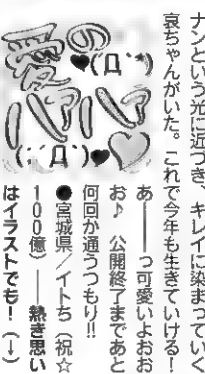 ナンという光に近づき、キレイに染まっていく
哀ちゃんがいた。これで今年も生きていける！
あ――っ可愛いよおお
お♪　公開終了まであと
何回か通うつもり!!
●宮城県／イトち（祝☆
100億）――熱き思い
はイラストでも！（↓）
愛の
パワパワ
♥(Д`*)
(;´Д`)♥